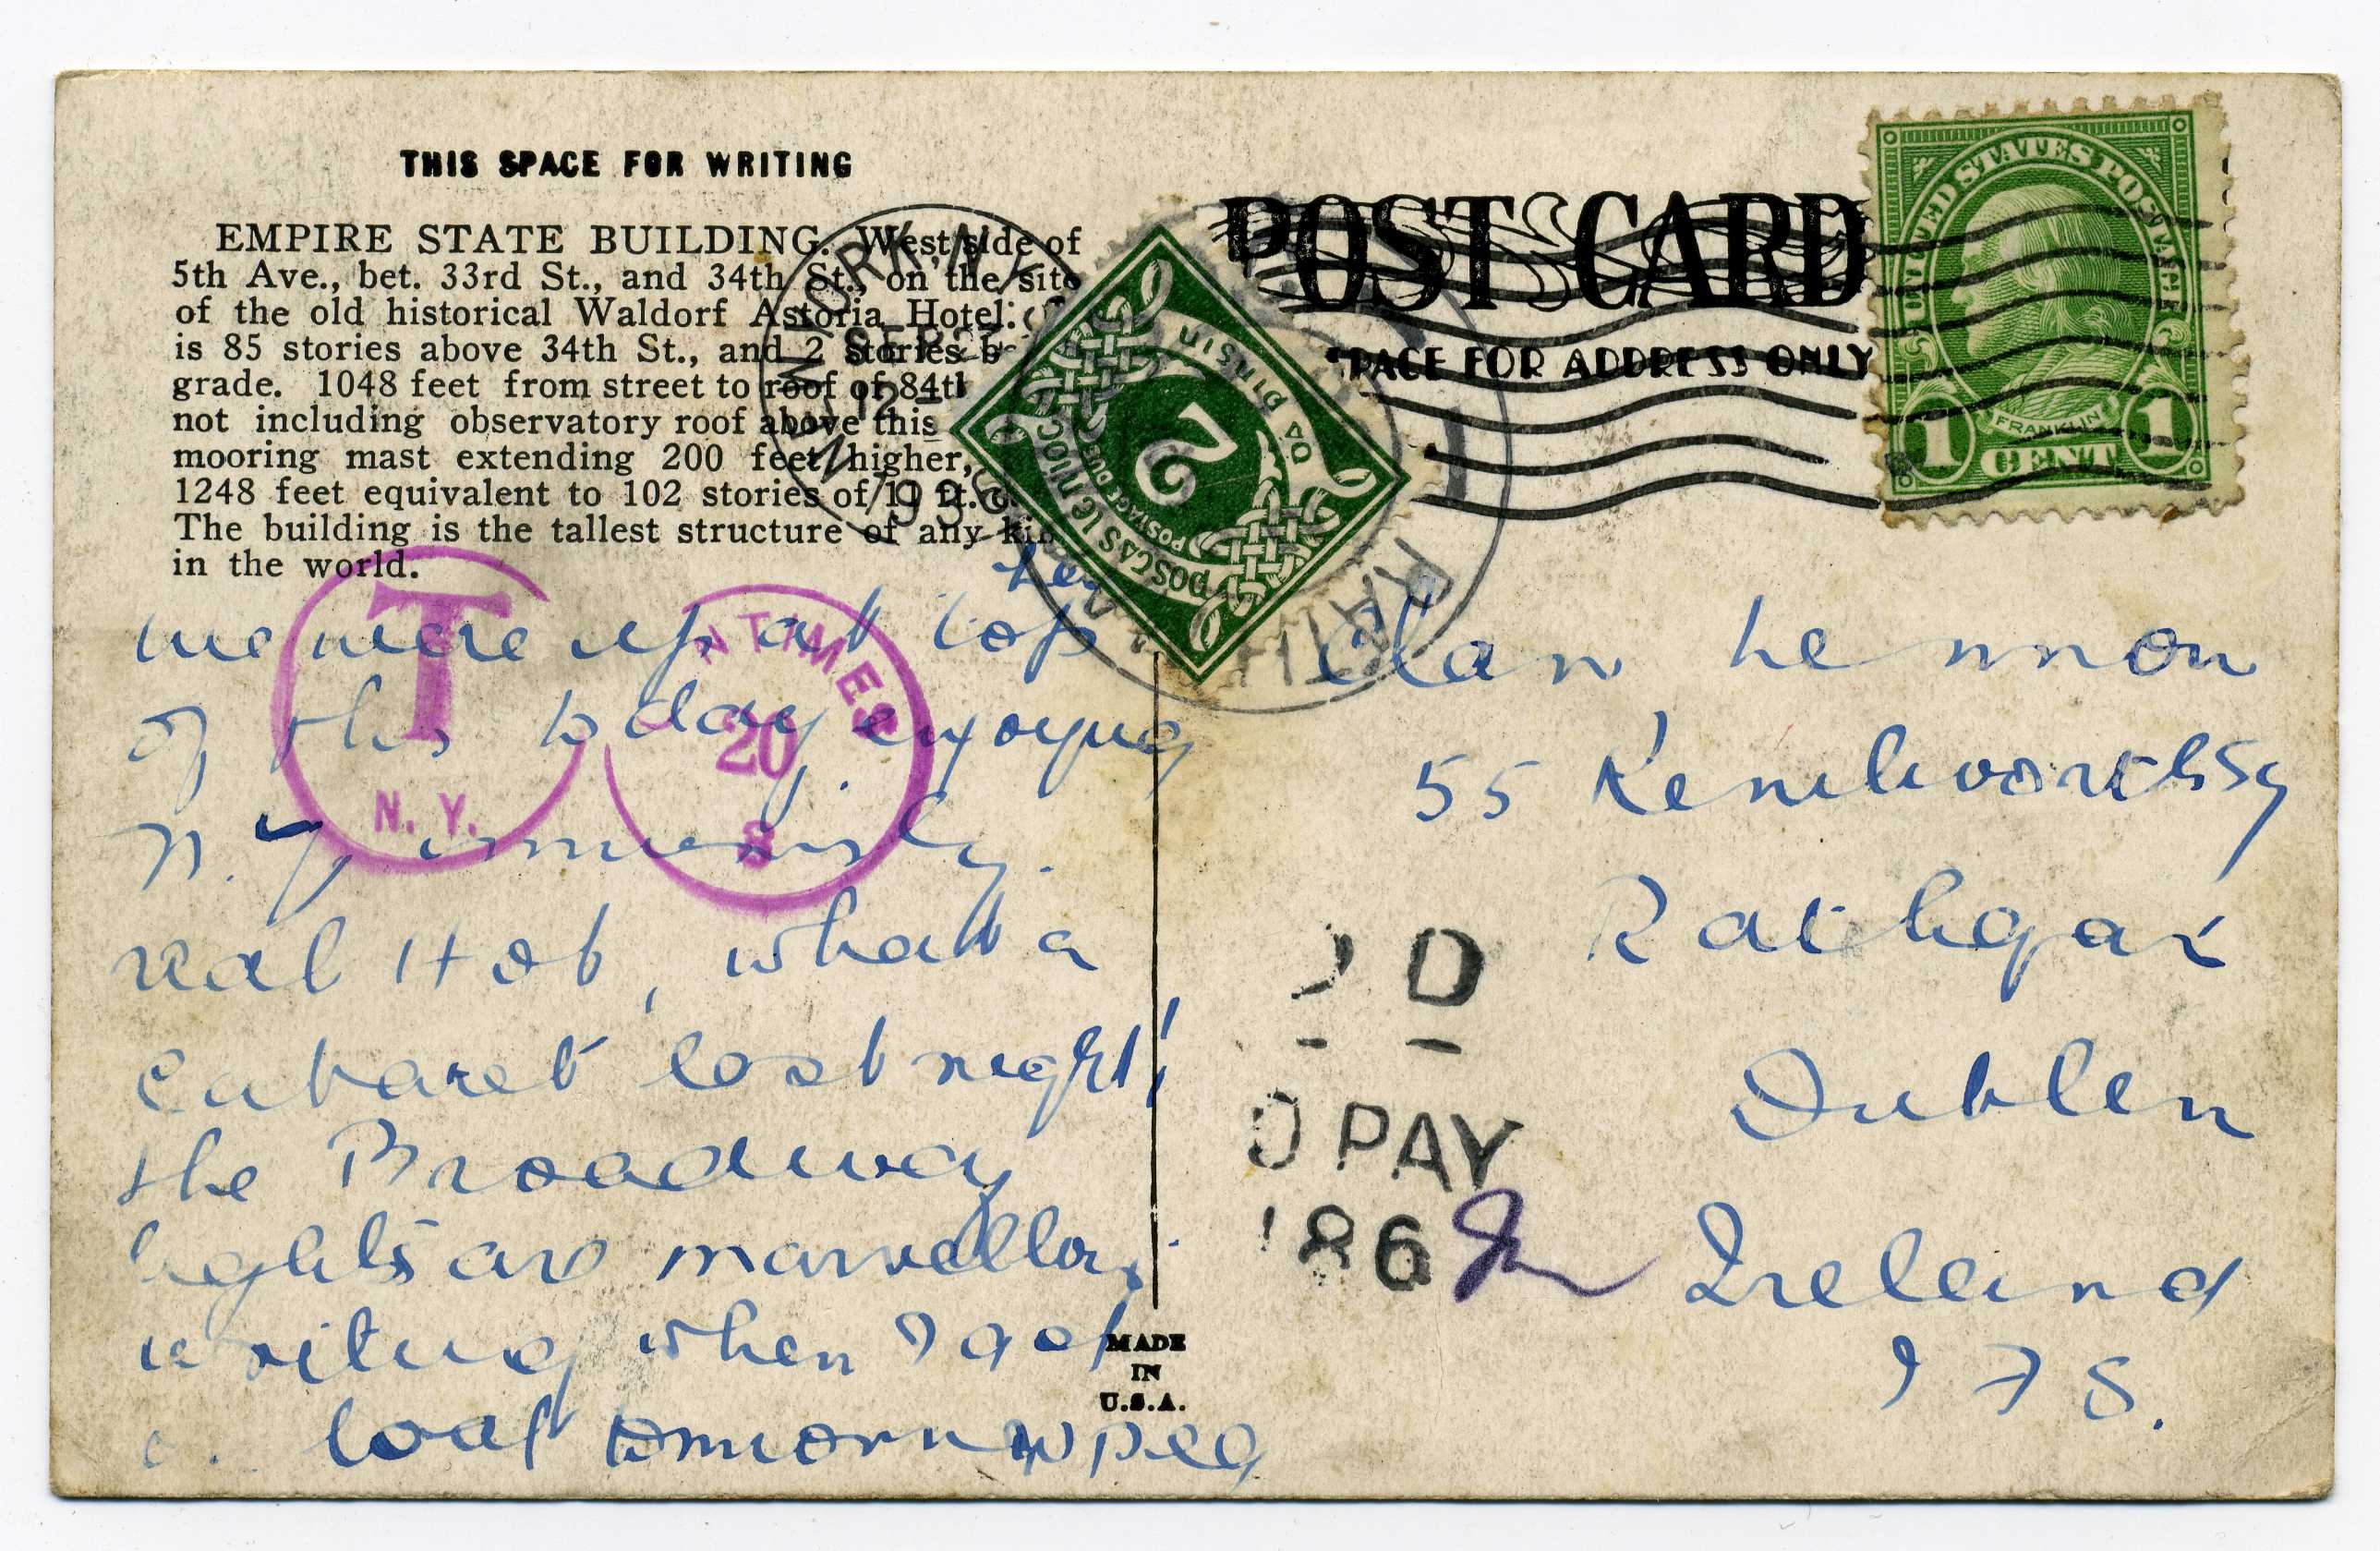 THIS SPACE FOR WRITING
EMPIRE STATE BUILDING. West side of
5th Ave., bet. 33rd St., and 34th St., on the site
of the old historical Waldorf Astoria Hotel.
is 85 stories above 34th St., and 2 stories
grade. 1048 feet from street to roof of 84th
not including observatory roof above this
mooring mast extending 200 feet higher,
1248 feet equivalent to 102 stories of 11 ft.
The building is the tallest structure of any
in the world.
we were up at top
of this to day enjoying
N.Y. immensely.
real Hot, what a
cabaret last night!
the Broadway
lights are marvellous
writing when I get
boat tomorrow Peg
POST CARD
SPACE FOR ADDRESS ONLY
UNITED STATES POSTAGE
FRANKLIN
1 CENT 1
NEW YORK, N.Y.
SEP
12
193
POSTAS LE NÍOC
POSTAGE DUE
2
DÁ PINSIN
RATH
T
N. Y.
N TIMES
20
S
55 Kenilworth Sq
Rathgar
Dublin
Ireland
I F S.
2 D
O PAY
186
MADE
IN
U.S.A.